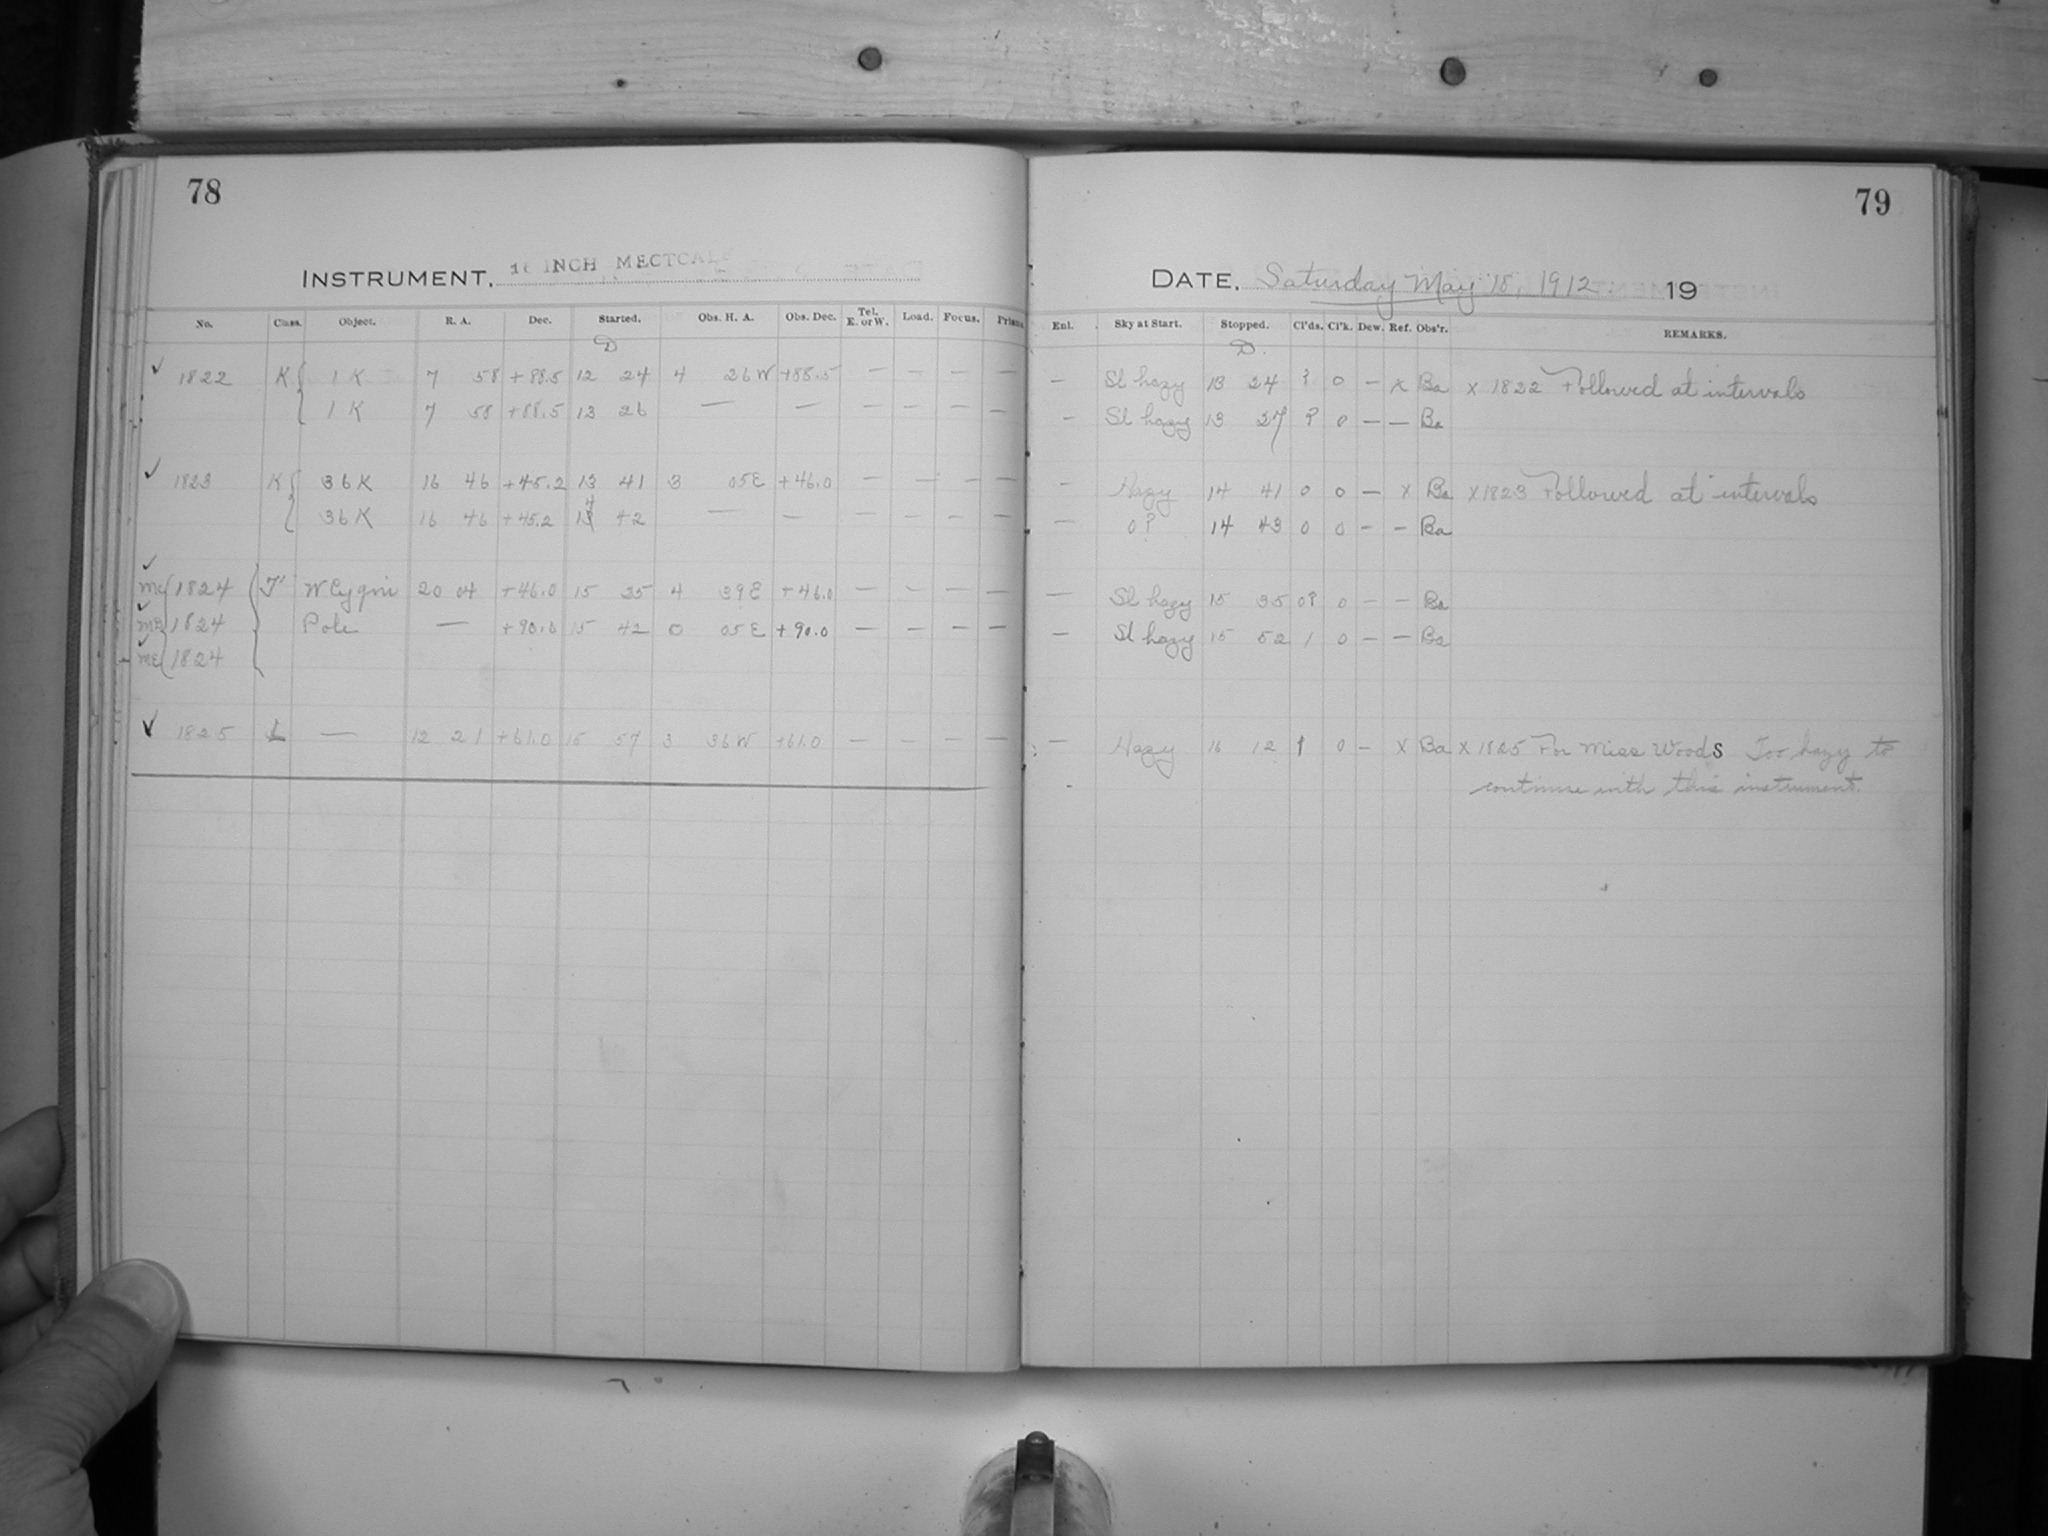 78
79
INSTRUMENT. 16 INCH MECTCALF
DATE. Saturday May 18, 1912 19
No. Class. Object. R. A. Dec. Started. Obs. H. A. Obs. Dec. Tel. E. or W. Load. Focus. Prisms. Enl. Sky at Start. Stopped. Cl'ds. Cl'k. Dew. Ref. Obs'r. REMARKS.
D D.
✓ 1822 K 1 K 7 58 +88.5 12 24 4 26 W +88.5 — — — — — Sl hazy 13 24 ? 0 — x Ba x 1822 Followed at intervals
1 K 7 58 +88.5 13 26 — — — — — — — Sl hazy 13 27 ? 0 — — Ba
✓ 1823 K 36 K 16 46 +45.2 13 41 3 05 E +46.0 — — — — — Hazy 14 41 0 0 — x Ba x 1823 Followed at intervals
36 K 16 46 +45.2 14 42 — — — — — — — 0? 14 43 0 0 — — Ba
✓ MC 1824 W Cygni 20 04 +46.0 15 25 4 39 E +46.0 — — — — — Sl hazy 15 35 0? 0 — — Ba
✓ MC 1824 Pole — +90.0 15 42 0 05 E +90.0 — — — — — Sl hazy 15 52 1 0 — — Ba
✓ 1824
✓ 1825 L — 12 21 +61.0 15 57 3 36 W +61.0 — — — — — Hazy 16 12 1 0 — x Ba x 1825 For Miss Woods Too hazy to
continue with this instrument.